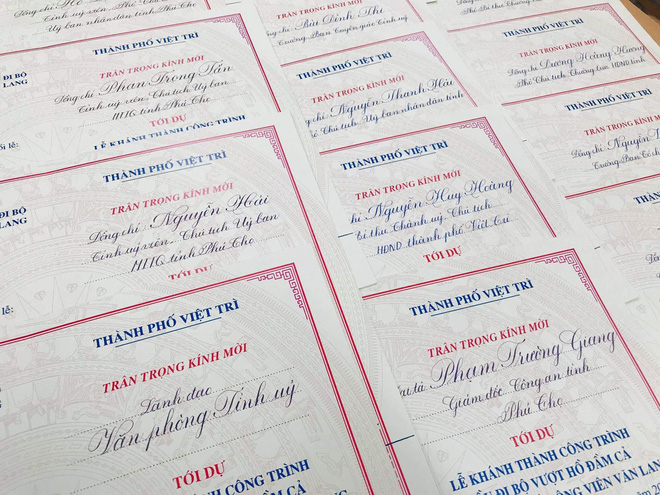 THÀNH PHỐ VIỆT TRÌ
TRÂN TRỌNG KÍNH MỜI
Đồng chí Phan Trọng Tấn
Tỉnh uỷ viên, Chủ tịch Uỷ ban
MTTQ tỉnh Phú Thọ
LỄ KHÁNH THÀNH CÔNG TRÌNH
ĐI BỘ
LANG
chí Bùi Đình Thi
Trưởng Ban Tuyên giáo Tỉnh uỷ
THÀNH PHỐ VIỆT TRÌ
TRÂN TRỌNG KÍNH MỜI
chí Nguyễn Thanh Hải
Chủ tịch Uỷ ban nhân dân tỉnh
THÀNH PHỐ VIỆT TRÌ
TRÂN TRỌNG KÍNH MỜI
Đồng chí Dương Hoàng Hương
Phó Chủ tịch Thường trực HĐND tỉnh
THÀNH PHỐ VIỆT TRÌ
TRÂN TRỌNG KÍNH MỜI
Đồng chí Nguyễn
Trưởng Ban
THÀNH PHỐ VIỆT TRÌ
TRÂN TRỌNG KÍNH MỜI
Đồng chí Nguyễn Hải
Tỉnh uỷ viên, Chủ tịch Uỷ ban
MTTQ tỉnh Phú Thọ
TỚI DỰ
ĐI BỘ
LANG
lễ:
THÀNH PHỐ VIỆT TRÌ
TRÂN TRỌNG KÍNH MỜI
chí Nguyễn Huy Hoàng
Bí thư Thành uỷ, Chủ tịch
HĐND thành phố Việt Trì
TỚI DỰ
THÀNH PHỐ VIỆT TRÌ
TRÂN TRỌNG KÍNH MỜI
Lãnh đạo
Văn phòng Tỉnh uỷ
TỚI DỰ
KHÁNH THÀNH CÔNG TRÌNH
ĐI BỘ VƯỢT HỒ ĐẦM CẢ
THÀNH PHỐ VIỆT TRÌ
TRÂN TRỌNG KÍNH MỜI
tá Phạm Trường Giang
Giám đốc Công an tỉnh
Phú Thọ
TỚI DỰ
LỄ KHÁNH THÀNH CÔNG TRÌNH
ĐI BỘ VƯỢT HỒ ĐẦM CẢ
CÔNG VIÊN VĂN LANG